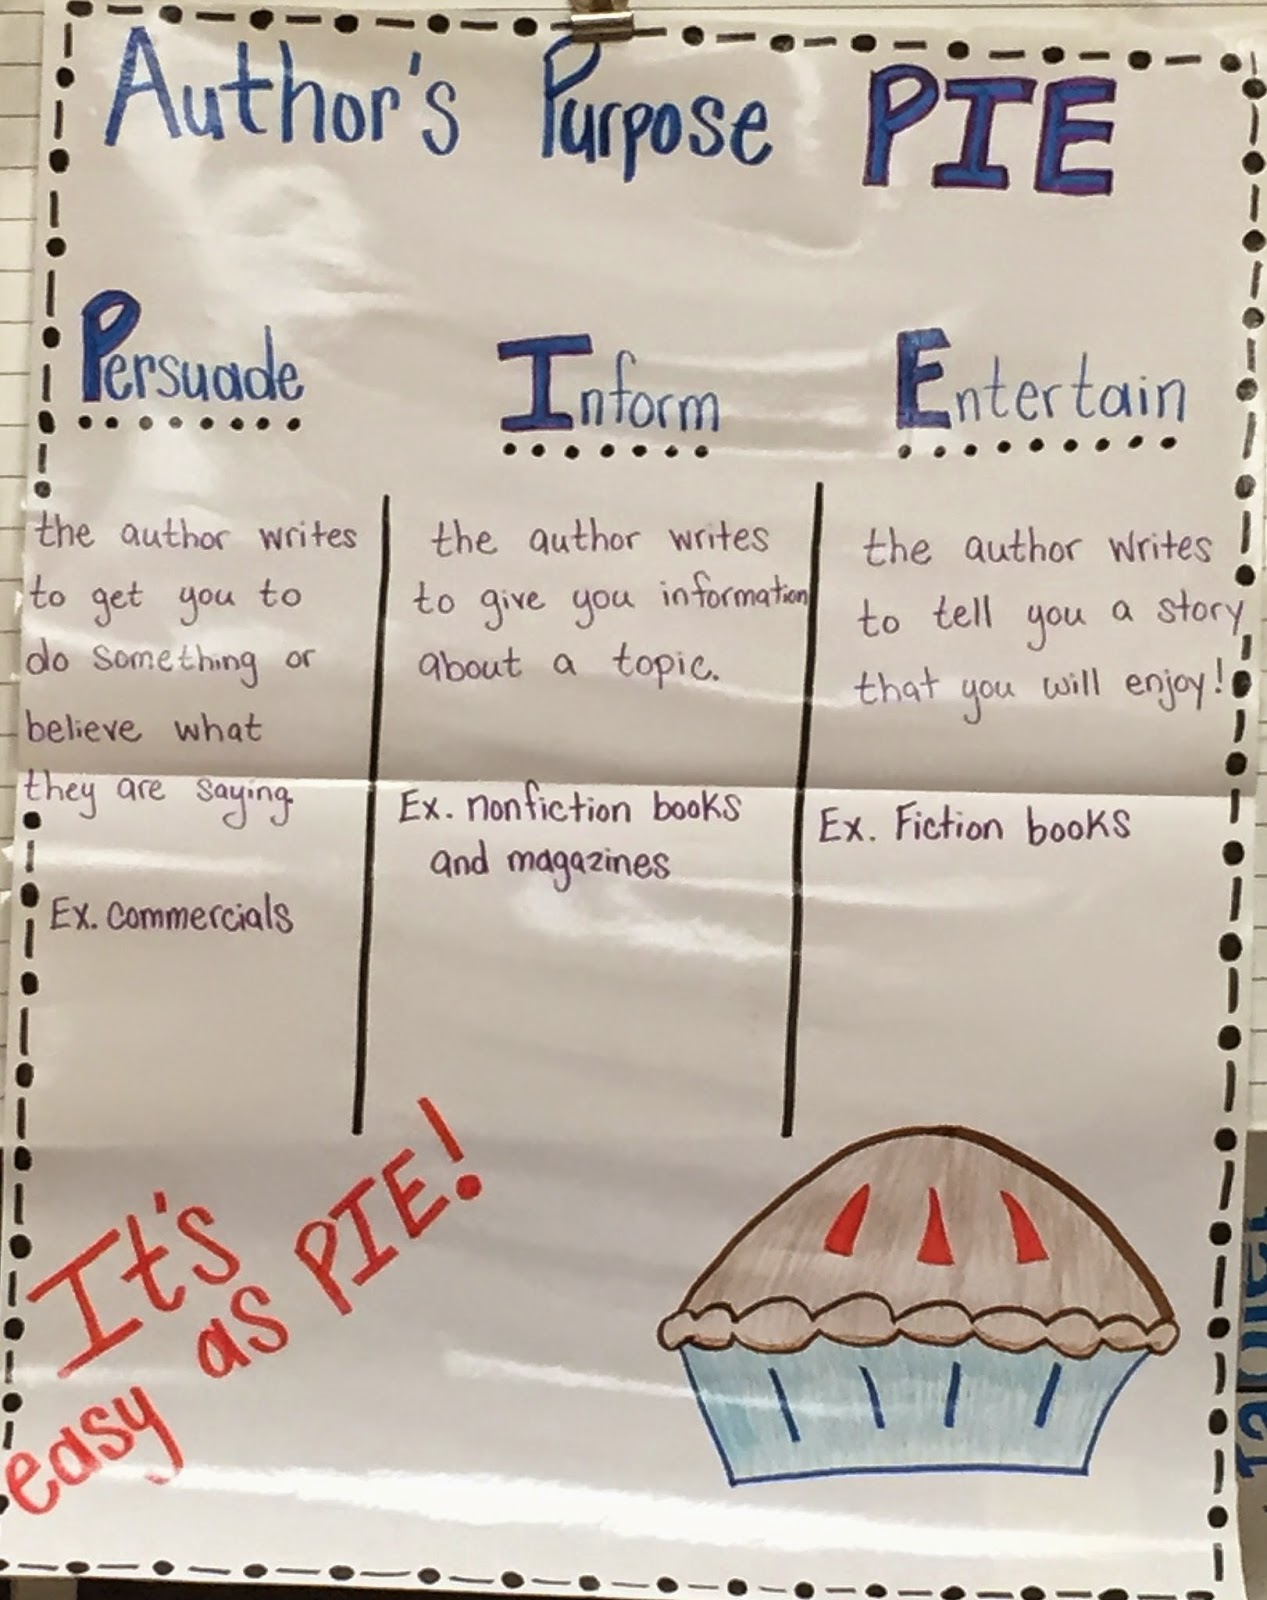 Author's Purpose PIE
Persuade
the author writes
to get you to
do something or
believe what
they are saying.
Ex. commercials
Inform
the author writes
to give you information
about a topic.
Ex. nonfiction books
and magazines
Entertain
the author writes
to tell you a story
that you will enjoy!
Ex. Fiction books
It's
easy as PIE!